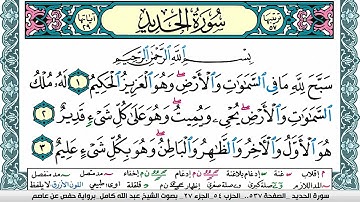 سُورَةُ الحَدِيدِ
بِسْمِ اللَّهِ الرَّحْمَٰنِ الرَّحِيمِ
سَبَّحَ لِلَّهِ مَا فِي السَّمَٰوَٰتِ وَالْأَرْضِ وَهُوَ الْعَزِيزُ الْحَكِيمُ ١ لَهُ مُلْكُ
السَّمَٰوَٰتِ وَالْأَرْضِ يُحْيِ وَيُمِيتُ وَهُوَ عَلَىٰ كُلِّ شَيْءٍ قَدِيرٌ ٢
هُوَ الْأَوَّلُ وَالْآخِرُ وَالظَّاهِرُ وَالْبَاطِنُ وَهُوَ بِكُلِّ شَيْءٍ عَلِيمٌ ٣
سورة الحديد - الصفحة ٥٣٧ - الحزب ٥٤ - الجزء ٢٧ - بصوت الشيخ عبد الله كامل - برواية حفص عن عاصم